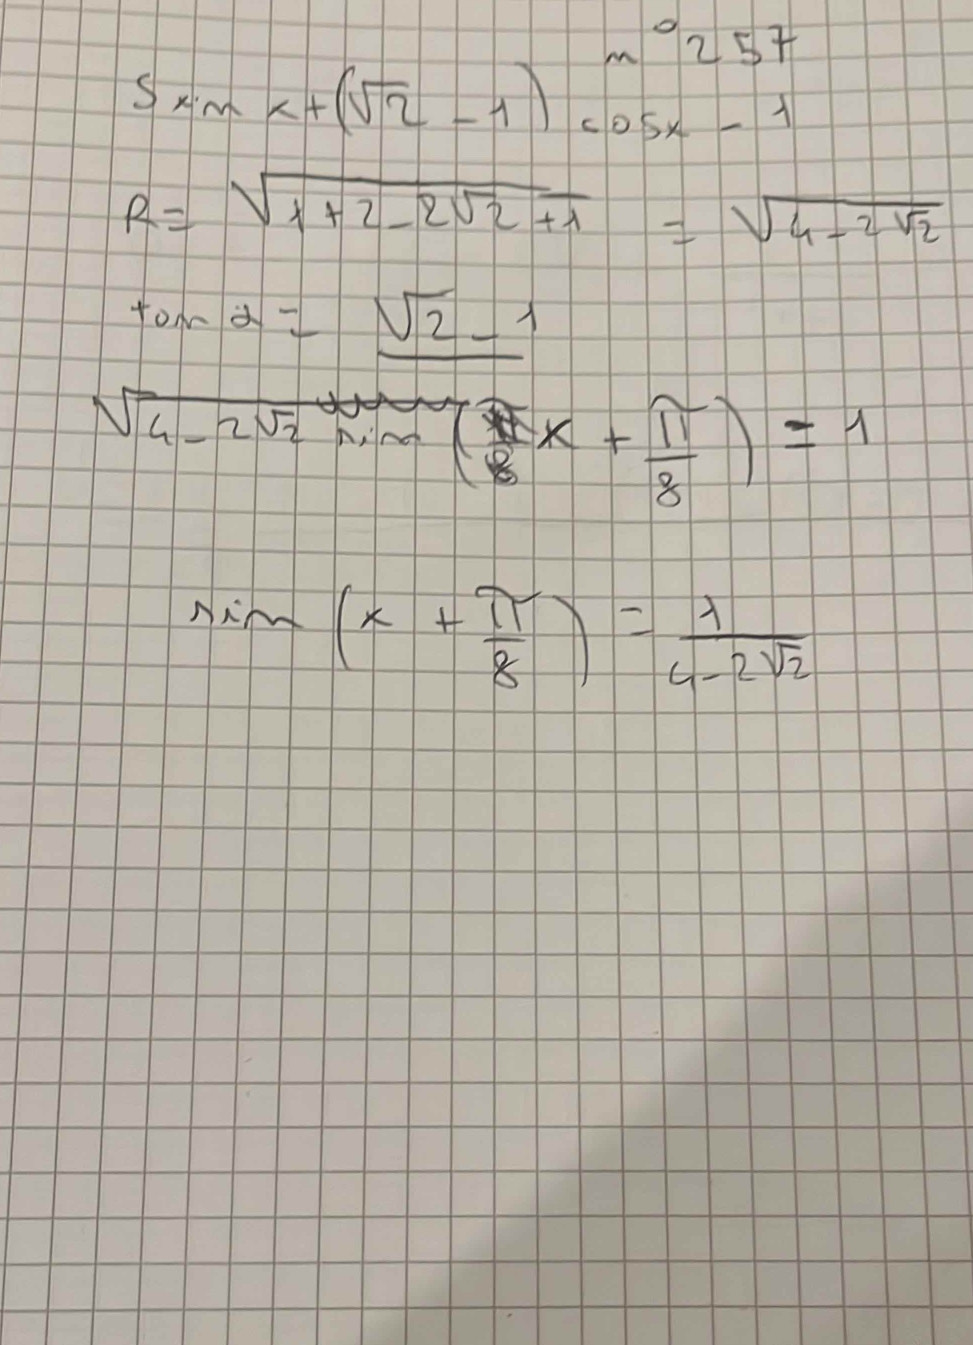 n° 257
S sin x + (√2 - 1) cosx - 1
R = √(1 + 2 - 2√2 + 1) = √(4 - 2√2)
tan α = √2 - 1
√(4 - 2√2) sin (x + π/8) = 1
sin (x + π/8) = 1/(4 - 2√2)